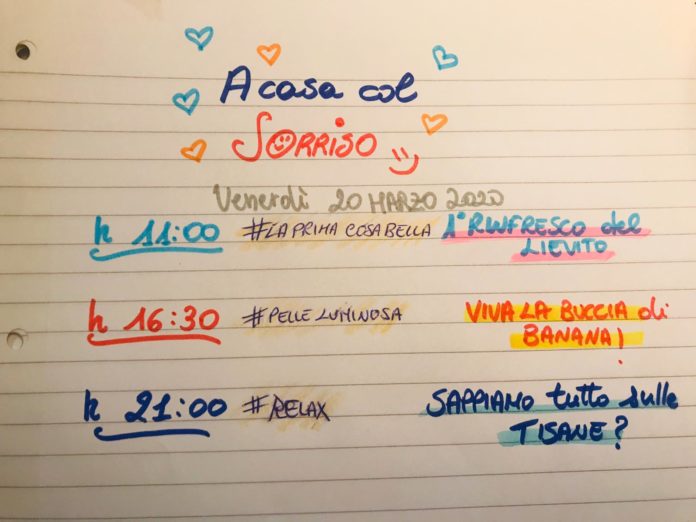 A casa col
SORRISO
Venerdì 20 MARZO 2020
h 11:00 #LA PRIMA COSA BELLA 1° RINFRESCO del
LIEVITO
h 16:30 #PELLE LUMINOSA VIVA LA BUCCIA di
BANANA!
h 21:00 #RELAX SAPPIAMO tutto sulle
TISANE?